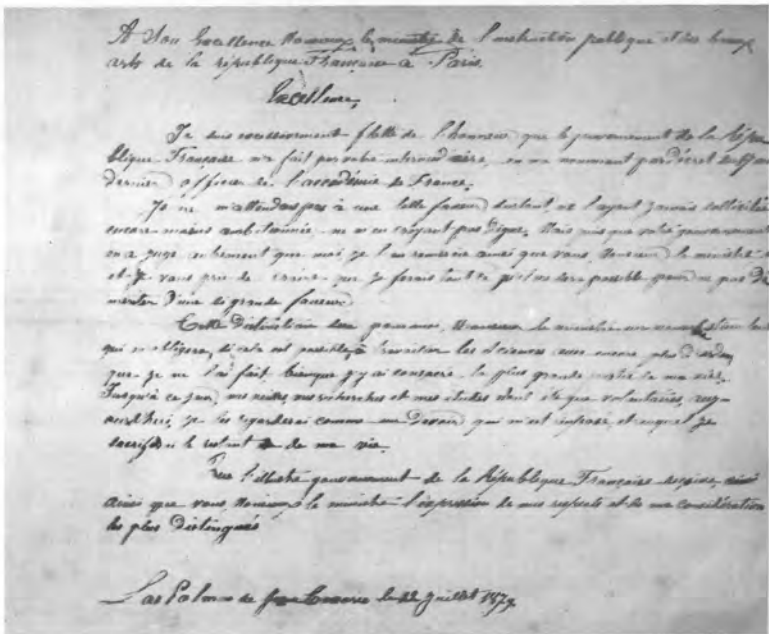 A Son Excellence Monsieur le ministre de l'instruction publique et des beaux
arts de la république Française a Paris.
Excellence,
Je suis excessivement flatté de l'honneur que le gouvernement de la Répu
blique Française m'a fait par votre intermédiaire, en me nommant par décret du
dernier officier de l'académie de France.
Je ne m'attendais pas à une telle faveur, ne l'ayant jamais sollicitée
encore moins ambitionnée, ne m'en croyant pas digne. Mais puis que votre gouvernement
en a jugé autrement que moi, je l'en remercie ainsi que vous, Monsieur le ministre
et je vous prie de croire que je ferais tout ce qu'il me sera possible pour ne pas dé
mériter d'une si grande faveur.
Cette distinction sera pour moi, Monsieur le ministre un
qui m'obligera, si cela est possible, à travailler les sciences avec encore plus d'ardeur
que je ne l'ai fait, bienque j'y ai consacré la plus grande partie de ma vie.
Jusqu'à ce jour, mes veilles, mes recherches et mes études n'ont été que volontaires, auj-
ourd'hui, je les regarderai comme un devoir qui m'est imposé, et auquel je
sacrifierai le restant de ma vie.
Que l'illustre gouvernement de la République Française reçoive,
ainsi que vous, Monsieur le ministre l'expression de mes respects et de ma considération
les plus distingués
Las Palmas de Gran Canarie le 22 Juillet 1879